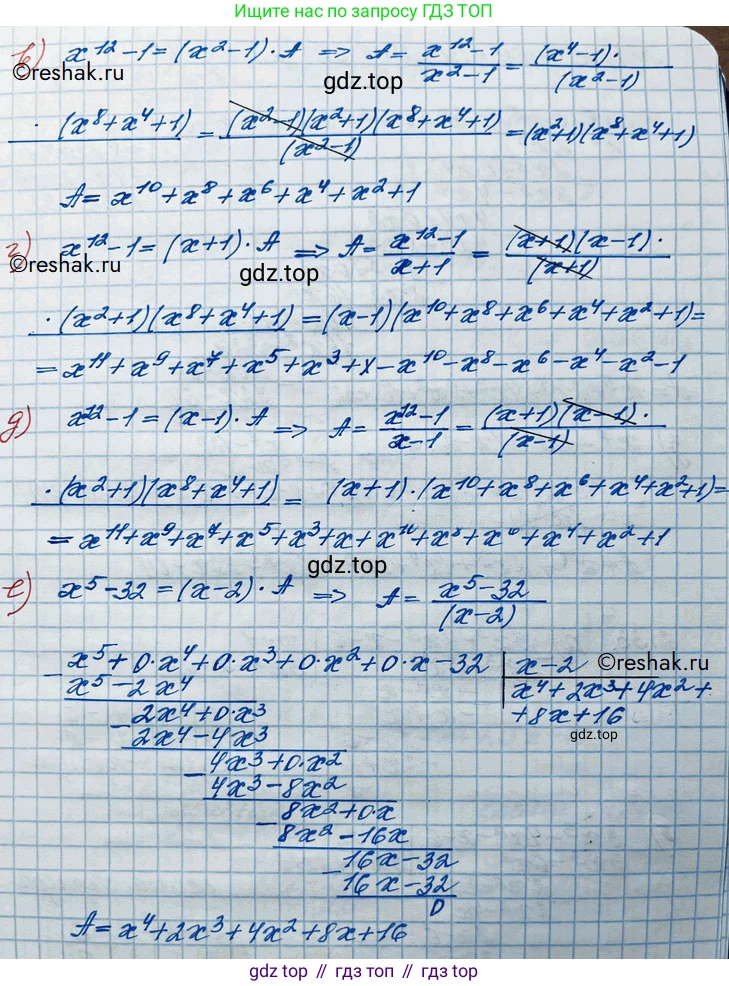 Ищите нас по запросу ГДЗ ТОП
в) x¹² - 1 = (x² - 1) · A => A = (x¹² - 1)/(x² - 1) = (x⁴ - 1) ·/(x² - 1)
©reshak.ru
gdz.top
· (x⁸ + x⁴ + 1) = (x² - 1)(x² + 1)(x⁸ + x⁴ + 1)/(x² - 1) = (x² + 1)(x⁸ + x⁴ + 1)
A = x¹⁰ + x⁸ + x⁶ + x⁴ + x² + 1
г) x¹² - 1 = (x + 1) · A => A = (x¹² - 1)/(x + 1) = (x + 1)(x - 1) ·/(x + 1)
©reshak.ru
gdz.top
· (x² + 1)(x⁸ + x⁴ + 1) = (x - 1)(x¹⁰ + x⁸ + x⁶ + x⁴ + x² + 1) =
= x¹¹ + x⁹ + x⁷ + x⁵ + x³ + x - x¹⁰ - x⁸ - x⁶ - x⁴ - x² - 1
д) x¹² - 1 = (x - 1) · A => A = (x¹² - 1)/(x - 1) = (x + 1)(x - 1) ·/(x - 1)
· (x² + 1)(x⁸ + x⁴ + 1) = (x + 1) · (x¹⁰ + x⁸ + x⁶ + x⁴ + x² + 1) =
= x¹¹ + x⁹ + x⁷ + x⁵ + x³ + x + x¹⁰ + x⁸ + x⁶ + x⁴ + x² + 1
gdz.top
е) x⁵ - 32 = (x - 2) · A => A = (x⁵ - 32)/(x - 2)
- x⁵ + 0·x⁴ + 0·x³ + 0·x² + 0·x - 32 | x - 2
©reshak.ru
x⁵ - 2x⁴ | x⁴ + 2x³ + 4x² +
- 2x⁴ + 0·x³ + 8x + 16
2x⁴ - 4x³
gdz.top
- 4x³ + 0·x²
4x³ - 8x²
- 8x² + 0·x
8x² - 16x
- 16x - 32
16x - 32
0
A = x⁴ + 2x³ + 4x² + 8x + 16
gdz top // гдз топ // gdz.top